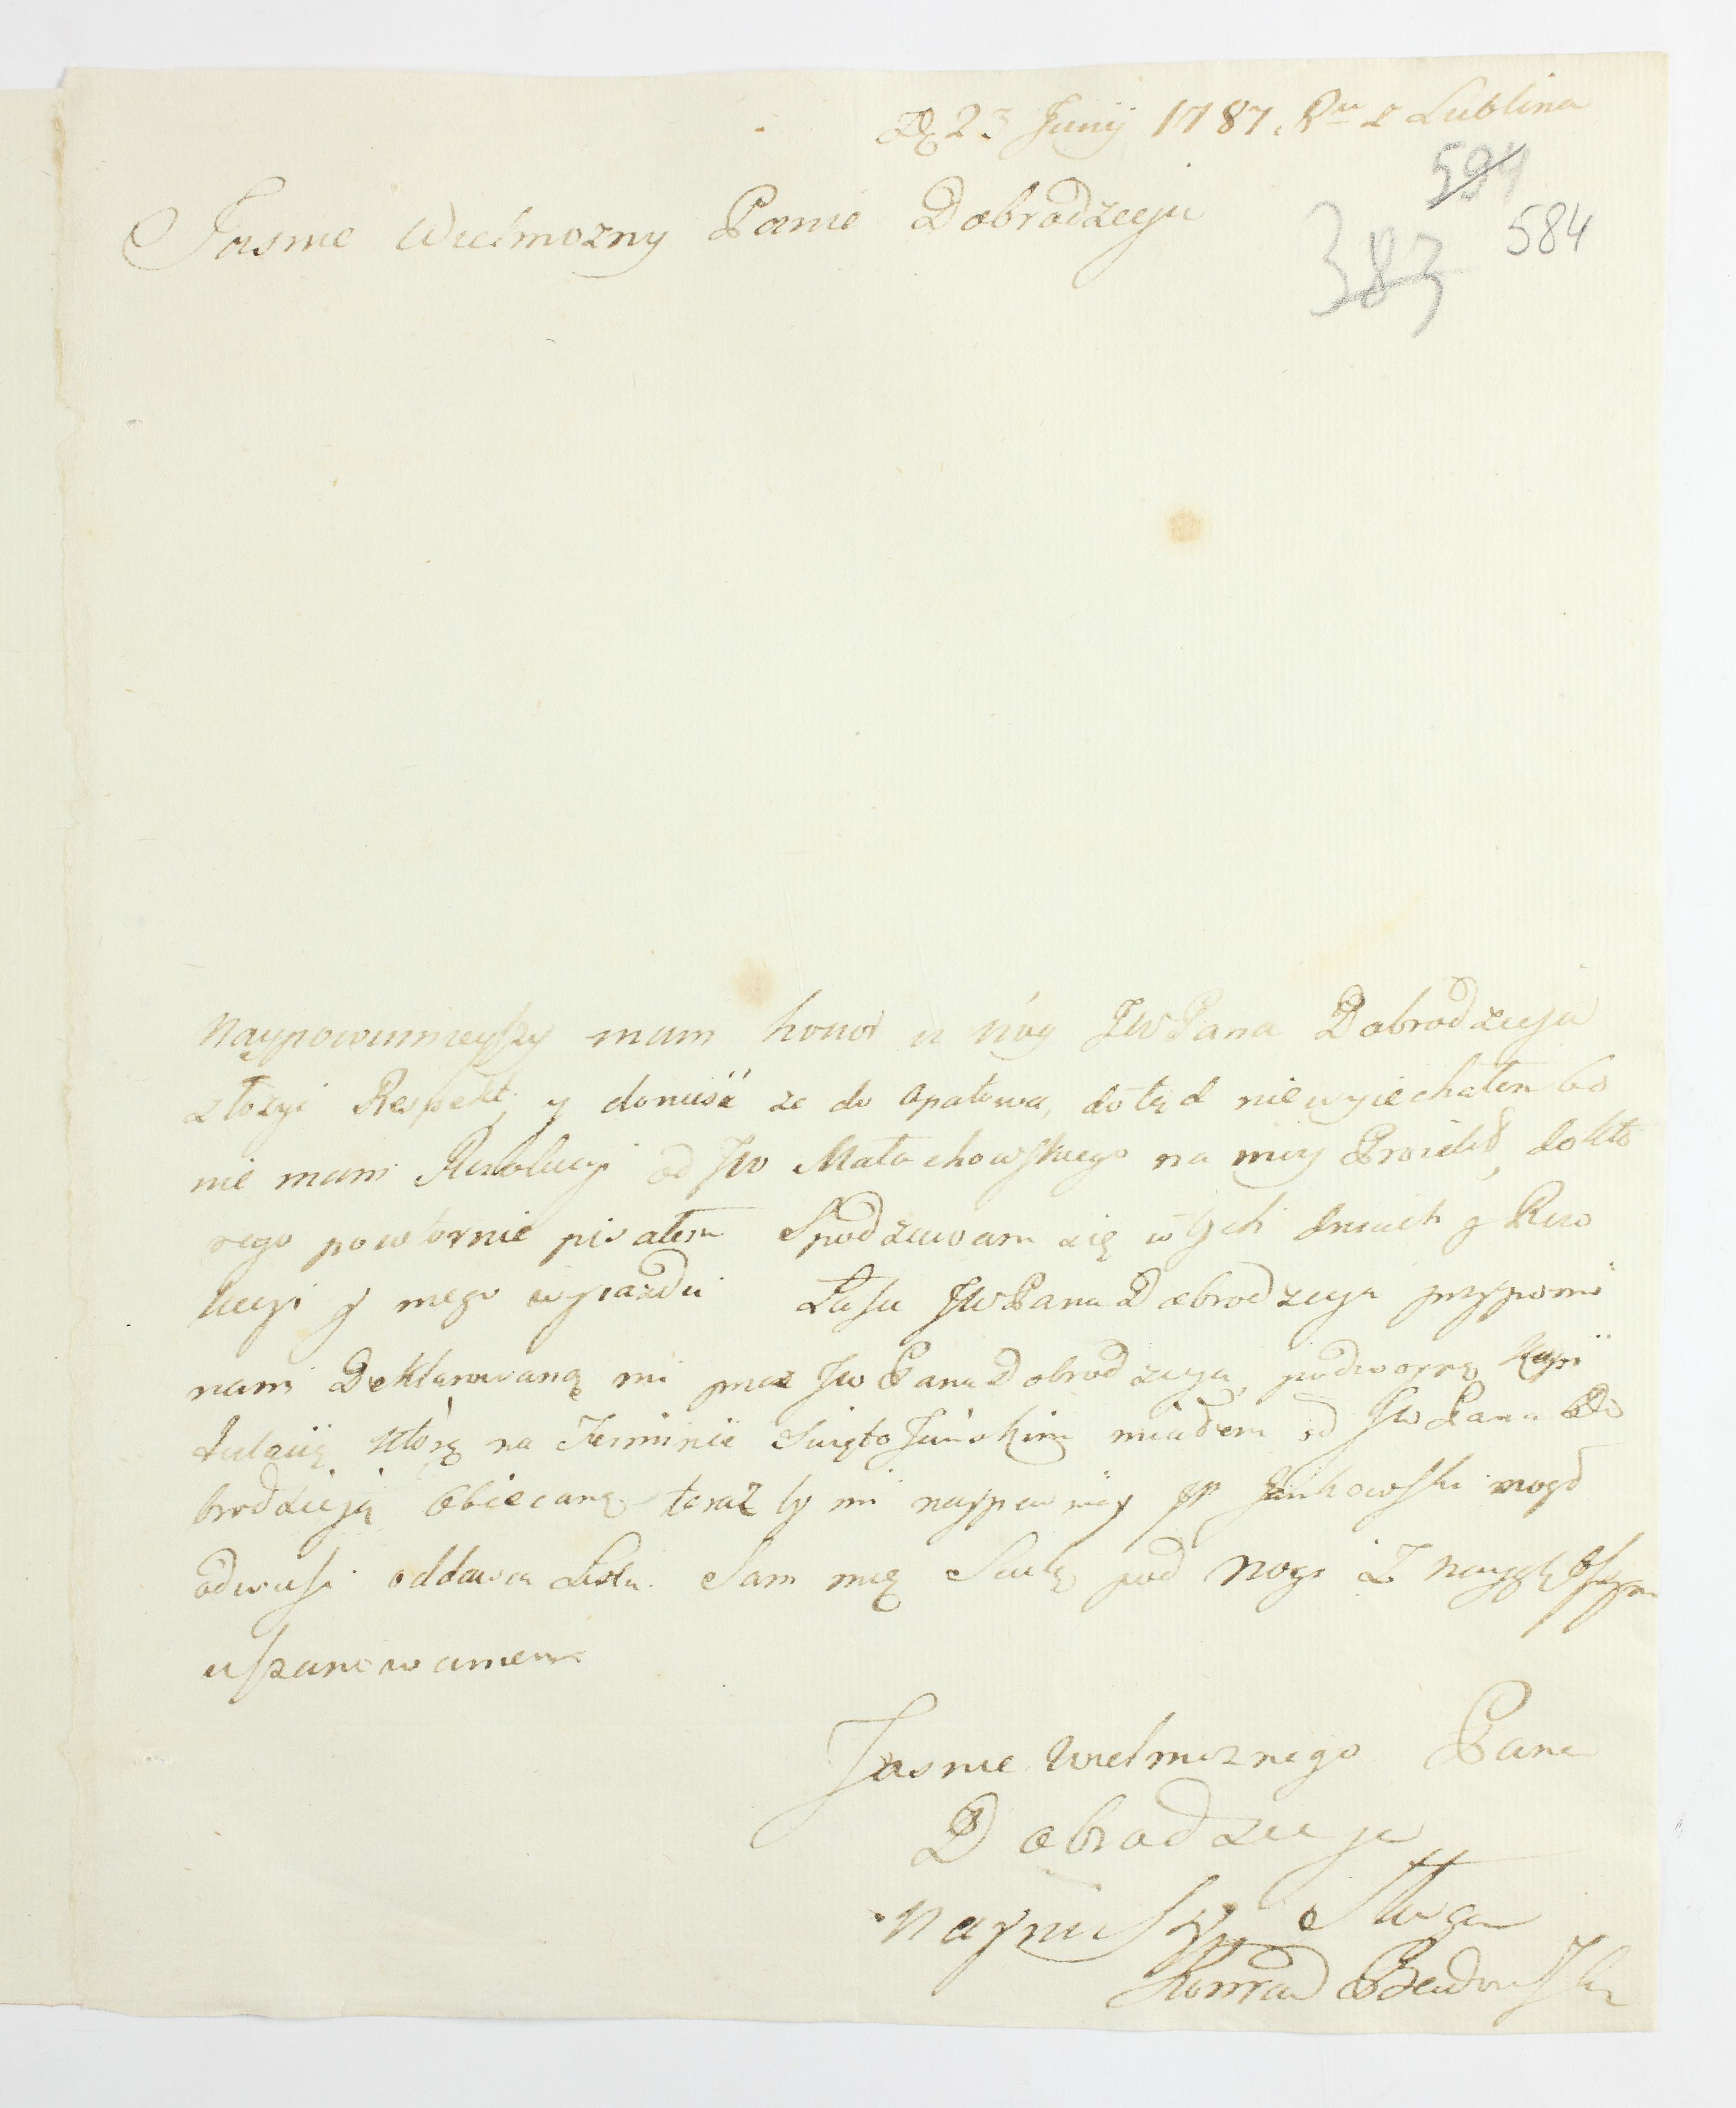 D. 23 Junij 1787. Ru z Lublina
594
584
383
Jasnie Wielmozny Panie Dobrodzieju
Naypowinnieyszy mam honor u nóg JW Pana Dobrodzieja
złozyć Respekt, y doniesć ze do Opatowa, dotąd niewyiechałem bo
nie mam Rezolucyi od JW Małachowskiego na moy Proiekt, do któ
rego powtornie pisałem Spodziewam się w tych dniach y Rezo
lucyi y mego wyiazdu Łasce JWPana Dobrodzieja przypomi
nam Deklarowaną mi przez JW Pana Dobrodzieja
którą na Terminie Święto Jańskim miałem od JW Pana Do
brodzieja obiecaną teraz by mi naypewniey JP Jankowski mogł
odwiesć oddawca Listu. Sam się Scielę pod nogi z naygłębszym
uszanowaniem
Jasnie Wielmoznego Pana
Dobrodzieja
Nayniszszy Sługa
Konrad